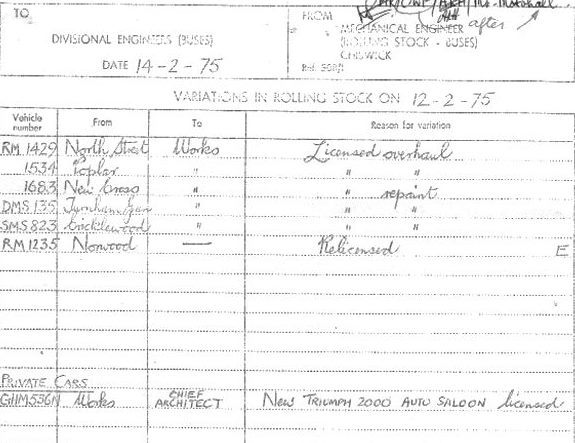 TO
FROM
after
DIVISIONAL ENGINEERS (BUSES)
MECHANICAL ENGINEER
(ROLLING STOCK - BUSES)
CHISWICK
DATE 14-2-75
VARIATIONS IN ROLLING STOCK ON 12-2-75
Vehicle number From To Reason for variation
RM 1429 North Street Works Licensed overhaul
1534 Poplar " " "
1683 New Cross " " repaint
DMS 135 Turnham Gn " " "
SMS 823 Cricklewood " " "
RM 1235 Norwood — Relicensed E
PRIVATE CARS
GHM 536N Works CHIEF ARCHITECT New TRIUMPH 2000 AUTO SALOON licensed